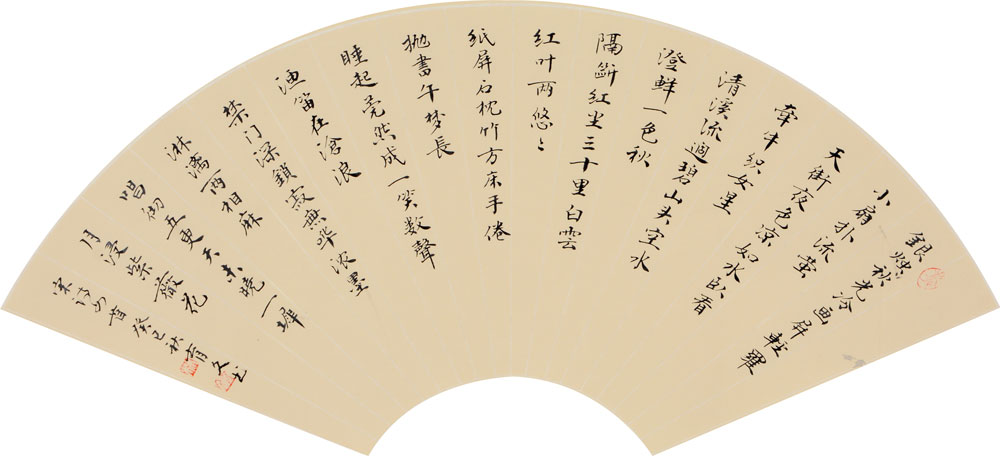 銀燭秋光冷画屏輕羅
小扇扑流萤
天街夜色凉如水卧看
牵牛织女星
清溪流過碧山头空水
澄鲜一色秋
隔断红尘三十里白雲
红叶两悠々
纸屏石枕竹方床手倦
抛書午梦長
睡起莞然成一笑数聲
渔笛在滄浪
禁门深鎖寂無哗浓墨
淋漓两相麻
唱彻五更天未晓一墀
月浸紫薇花
宋诗四首 癸巳秋有文书